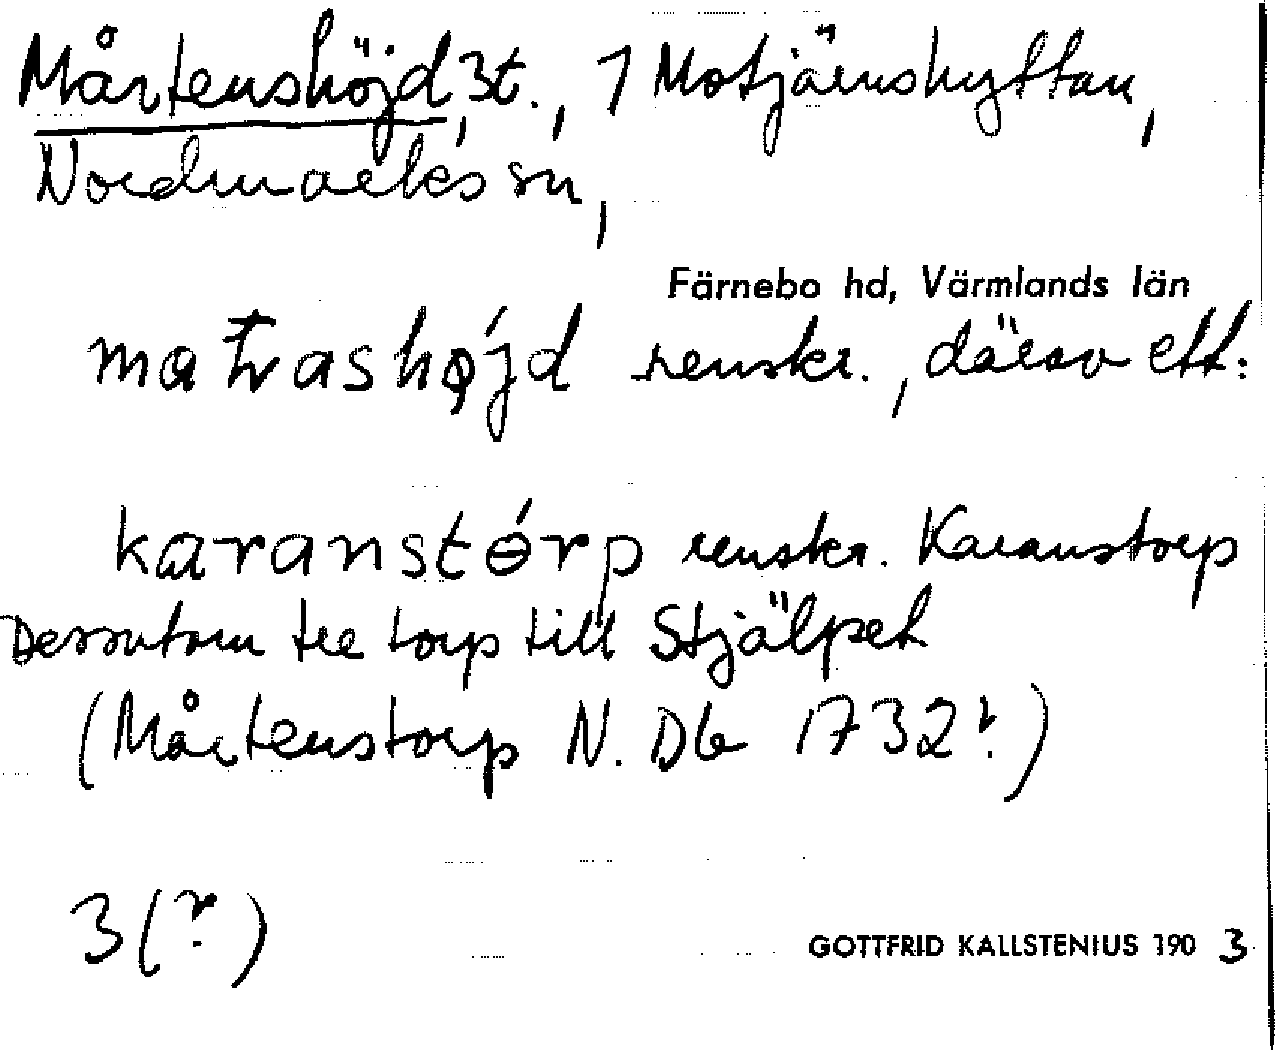 Mårtenshöjd, 3t., 1 Motjärnshyttan,
Nordmarks sn,
Färnebo hd, Värmlands län
renskr., därav ett:
karanstörp renskr. Karanstorp
Dessutom tre torp till Stjälpet
(Mårtenstorp N. Db 1732?)
3 (?)
GOTTFRID KALLSTENIUS 1903